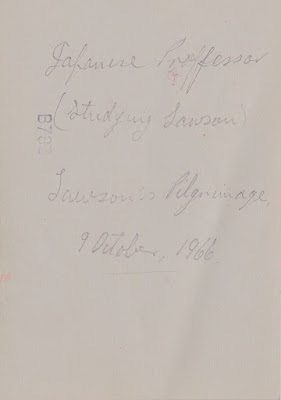 Japanese Proffessor
(Studying Lawson)
Lawson's Pilgrimage,
9 October, 1966.